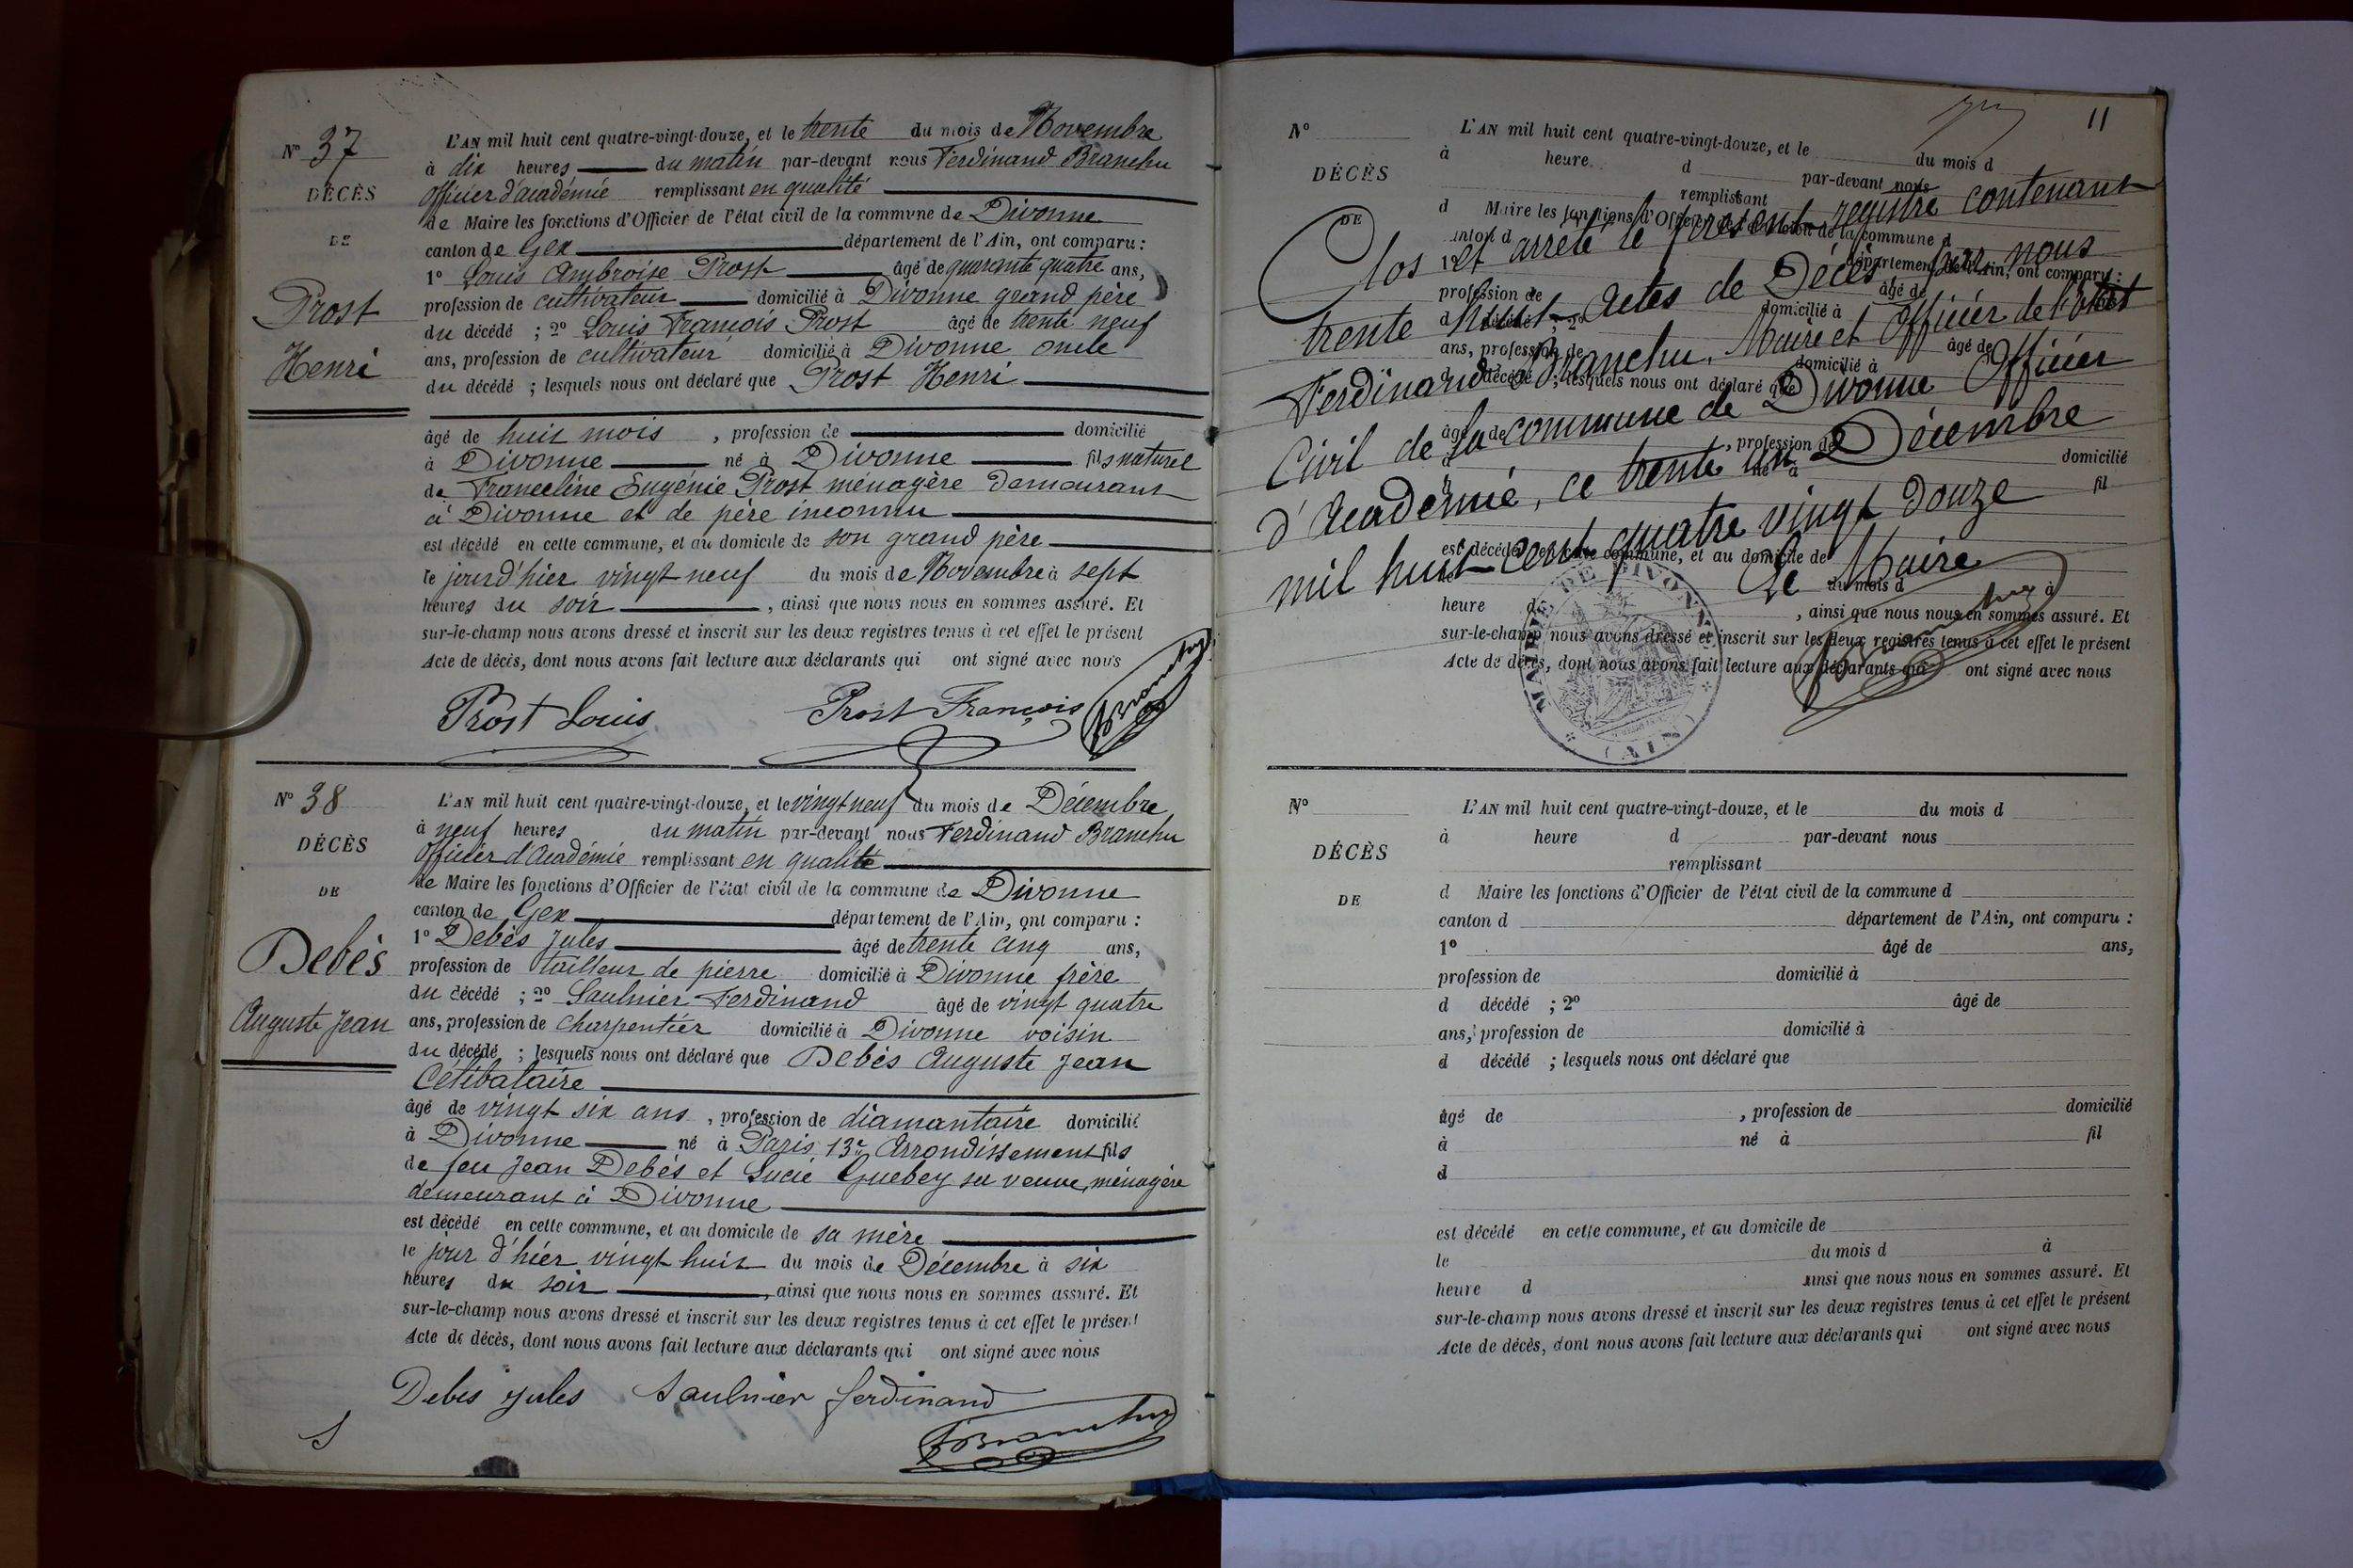 N° 37
DÉCÈS
DE
Prost
Henri
L'AN mil huit cent quatre-vingt-douze, et le trente du mois de Novembre
à dix heures du matin par-devant nous Ferdinand Branchu
Officier d'académie remplissant en qualité
de Maire les fonctions d'Officier de l'état civil de la commune de Divonne
canton de Gex département de l'Ain, ont comparu :
1° Louis Ambroise Prost âgé de quarante quatre ans,
profession de cultivateur domicilié à Divonne grand père
du décédé ; 2° Louis François Prost âgé de trente neuf
ans, profession de cultivateur domicilié à Divonne oncle
du décédé ; lesquels nous ont déclaré que Prost Henri
âgé de huit mois , profession de domicilié
à Divonne né à Divonne fils naturel
de Franceline Eugénie Prost ménagère demeurant
à Divonne et de père inconnu
est décédé en cette commune, et au domicile de son grand père
le jour d'hier vingt neuf du mois de Novembre à sept
heures du soir , ainsi que nous nous en sommes assuré. Et
sur-le-champ nous avons dressé et inscrit sur les deux registres tenus à cet effet le présent
Acte de décès, dont nous avons fait lecture aux déclarants qui ont signé avec nous
Prost Louis Prost François FBranchu
N° 38
DÉCÈS
DE
Debès
Auguste Jean
L'AN mil huit cent quatre-vingt-douze, et le vingt neuf du mois de Décembre
à neuf heures du matin par-devant nous Ferdinand Branchu
Officier d'Académie remplissant en qualité
de Maire les fonctions d'Officier de l'état civil de la commune de Divonne
canton de Gex département de l'Ain, ont comparu :
1° Debès Jules âgé de trente cinq ans,
profession de tailleur de pierre domicilié à Divonne frère
du décédé ; 2° Saulnier Ferdinand âgé de vingt quatre
ans, profession de charpentier domicilié à Divonne voisin
du décédé ; lesquels nous ont déclaré que Debès Auguste Jean
Célibataire
âgé de vingt six ans , profession de diamantaire domicilié
à Divonne né à Paris 13e Arrondissement fils
de feu Jean Debès et Lucie Guebey sa veuve, ménagère
demeurant à Divonne
est décédé en cette commune, et au domicile de sa mère
le jour d'hier vingt huit du mois de Décembre à six
heures du soir , ainsi que nous nous en sommes assuré. Et
sur-le-champ nous avons dressé et inscrit sur les deux registres tenus à cet effet le présent
Acte de décès, dont nous avons fait lecture aux déclarants qui ont signé avec nous
Debès Jules Saulnier ferdinand
FBranchu
11
N°
DÉCÈS
DE
L'AN mil huit cent quatre-vingt-douze, et le du mois d
à heure d par-devant nous
remplissant
d Maire les fonctions d'Officier de l'état civil de la commune d
canton d département de l'Ain, ont comparu :
1° âgé de
profession de domicilié à
d décédé ; 2° âgé de
ans, profession de domicilié à
d décédé ; lesquels nous ont déclaré que
âgé de , profession de domicilié
à né à fil
est décédé en cette commune, et au domicile de
du mois d à
heure d , ainsi que nous nous en sommes assuré. Et
sur-le-champ nous avons dressé et inscrit sur les deux registres tenus à cet effet le présent
Acte de décès, dont nous avons fait lecture aux déclarants qui ont signé avec nous
Clos et arrêté le présent registre contenant
trente huit Actes de Décès par nous
Ferdinand Branchu, Maire et Officier de l'Etat
Civil de la commune de Divonne Officier
d'Académie, ce trente un Décembre
mil huit cent quatre vingt douze
Le Maire
FBranchu
MAIRIE DE DIVONNE
(AIN)
N°
DÉCÈS
DE
L'AN mil huit cent quatre-vingt-douze, et le du mois d
à heure d par-devant nous
remplissant
d Maire les fonctions d'Officier de l'état civil de la commune d
canton d département de l'Ain, ont comparu :
1° âgé de ans,
profession de domicilié à
d décédé ; 2° âgé de
ans, profession de domicilié à
d décédé ; lesquels nous ont déclaré que
âgé de , profession de domicilié
à né à fil
d
est décédé en cette commune, et au domicile de
le du mois d à
heure d ainsi que nous nous en sommes assuré. Et
sur-le-champ nous avons dressé et inscrit sur les deux registres tenus à cet effet le présent
Acte de décès, dont nous avons fait lecture aux déclarants qui ont signé avec nous